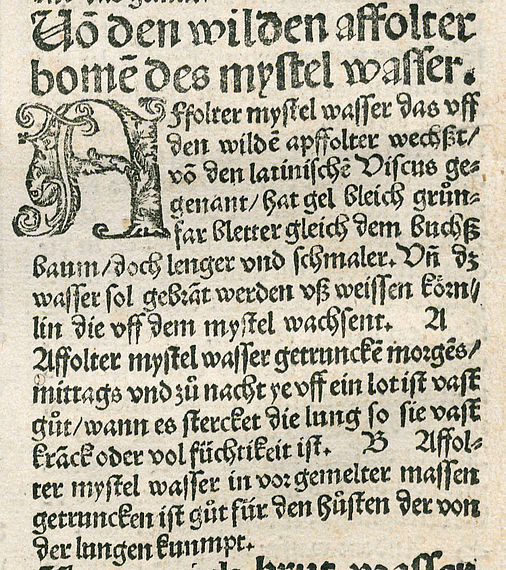 Uō den wilden affolter
bomē des mystel wasser.
Affolter mystel wasser das vff
den wildē apffolter wechßt/
vō den latinischē Viscus ge⸗
genant/hat gel bleich grůn⸗
far bletter gleich dem buchß
baum/doch lenger vnd schmaler. Vñ dz
wasser sol gebrāt werden vß weissen körn/
lin die vff dem mystel wachsent. A
Affolter mystel wasser getrunckē morgēs/
mittags vnd zů nacht ye vff ein lot ist vast
gůt/wann es stercket die lung so sie vast
kräck oder vol füchtikeit ist. B Affol⸗
ter mystel wasser in vor gemelter massen
getruncken ist gůt für den hůsten der von
der lungen kunmpt.